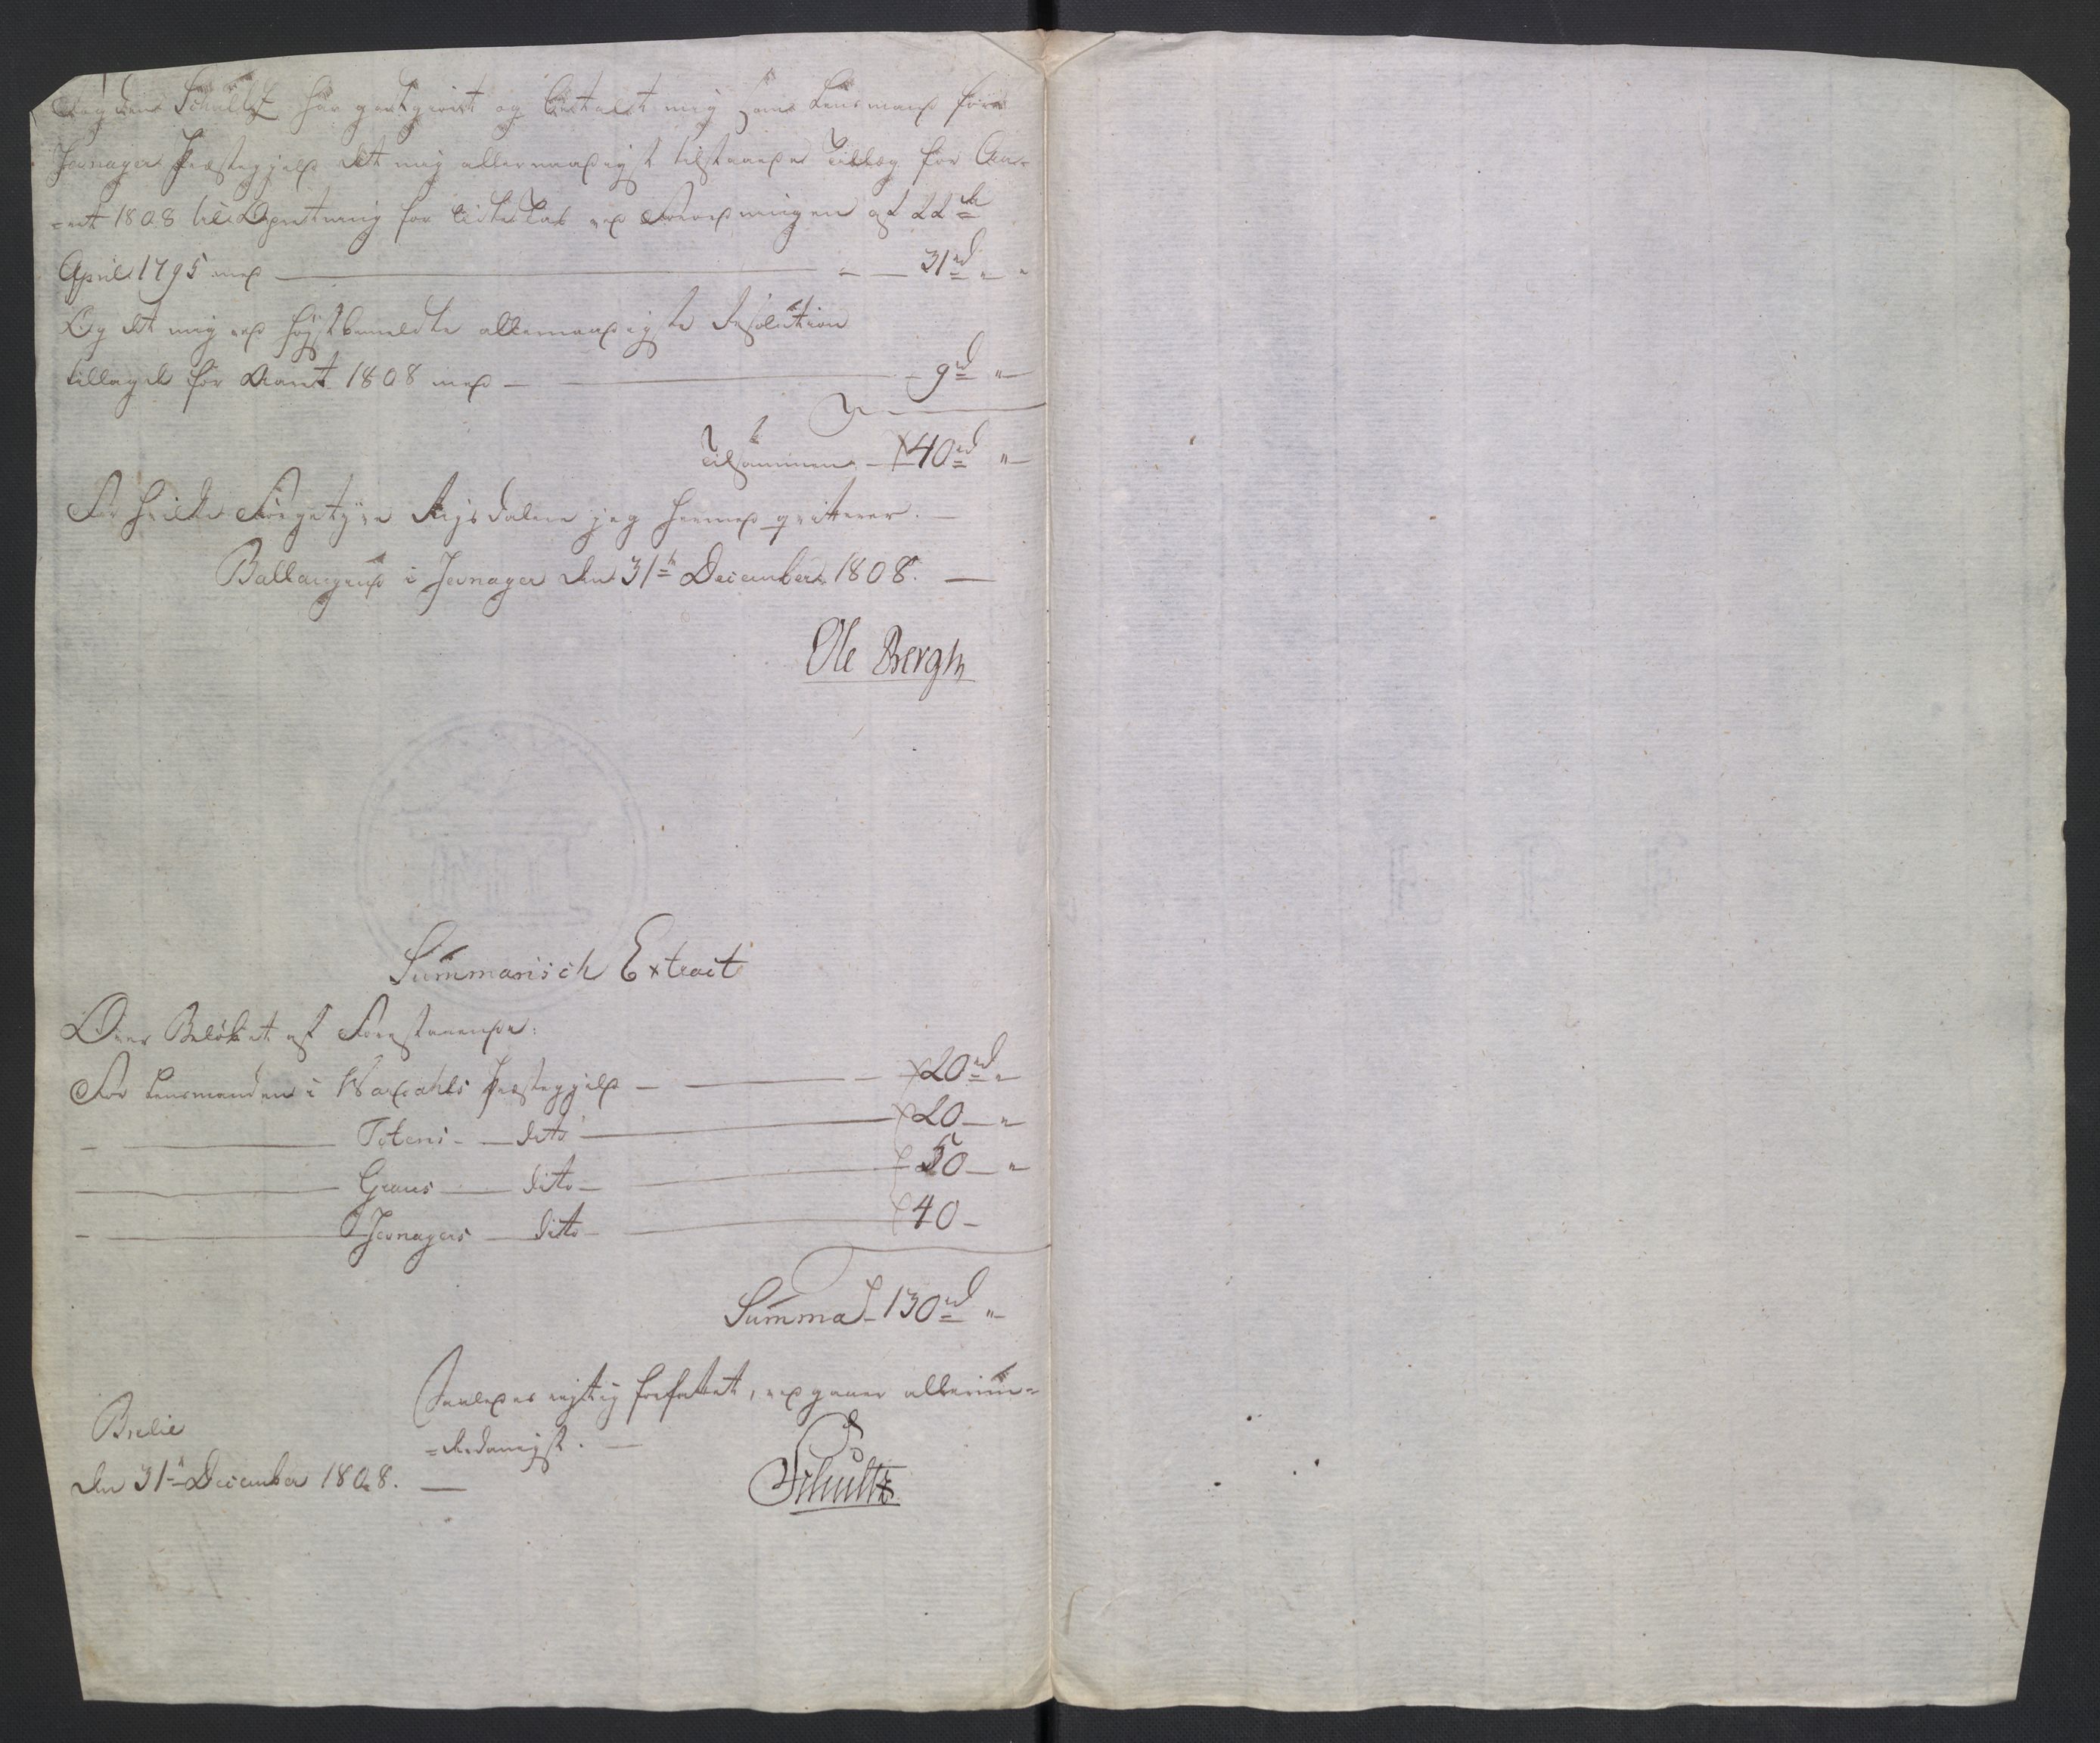 Fogden Schultz har godtgiort og betalt mig som Lensmand for
Jevnager Præstegjeld det mig allernaadigst tilstaaede Tillæg for Aa-
=ret 1808 til Opretning for ved Forordningen af 22de
April 1795 med — 31 rd " "
Og det mig ved høystbemeldte allernaadigste Resolution
tillagde for Aaret 1808 med — 9 rd "
Tilsammen — 40 rd "
For hvilke Förgetyve Rigsdaler jeg hermed qvitterer. —
Ballangrud i Jevnager den 31te December 1808. —
Ole Bergh
Summarisch Extract
Over Beløbet af Forestaaende:
For Lensmanden i Wardahls Præstegjeld — 20 rd "
— Totens — dito — 20 — "
— Grans — dito — 50 — "
— Jevnagers — dito — 40 —
Summa — 130 rd "
Saaledes rigtig forfattet, vedgaaer allerun=
=derdanigst. —
Brelie
den 31te December 1808. —
Schultz